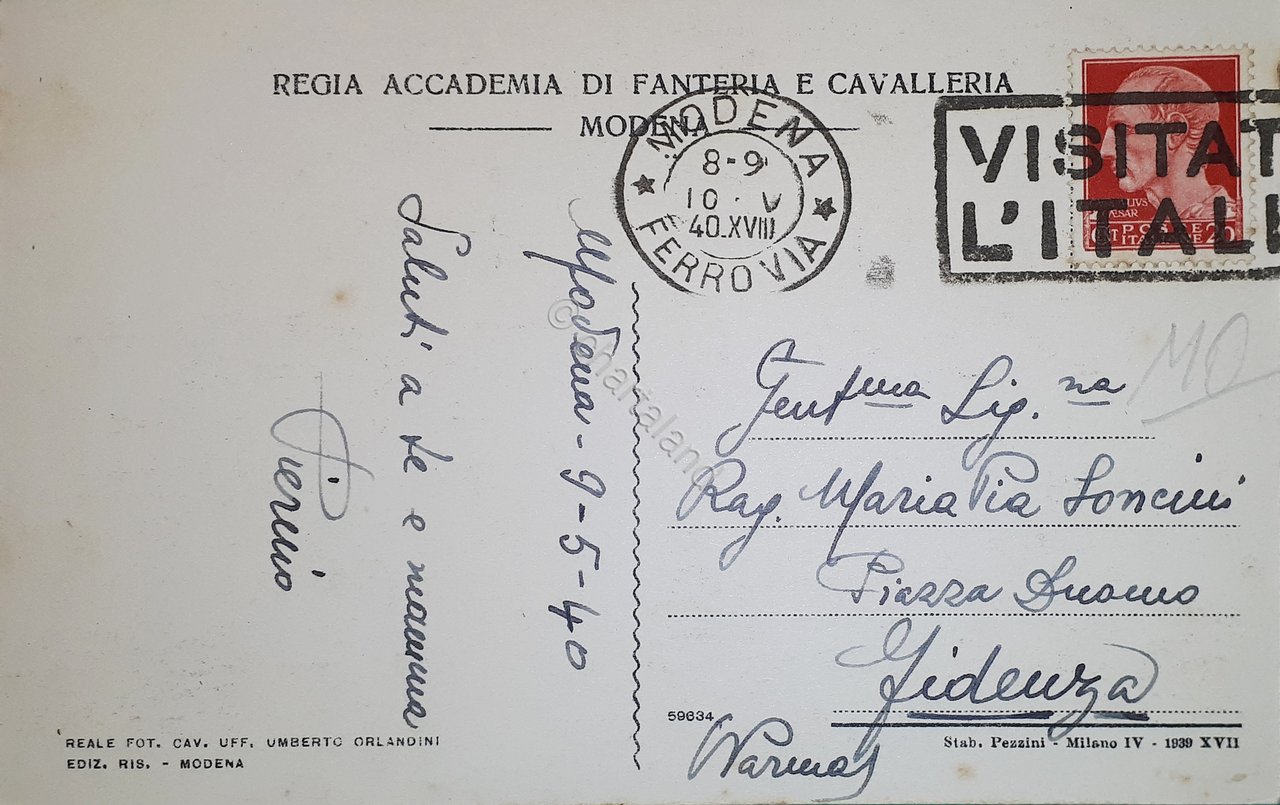 REGIA ACCADEMIA DI FANTERIA E CAVALLERIA
MODENA
MODENA
8-9
10 . V
40.XVIII
FERROVIA
VISITAT
L'ITALI
CAESAR
POSTE
ITALIANE
20
Modena - 9-5-40
Saluti a te e mamma
Pierino
MO
Gentma Sig.na
Rag. Maria Pia Soncini
Piazza Duomo
Fidenza
(Parma)
59634
Stab. Pezzini - Milano IV - 1939 XVII
REALE FOT. CAV. UFF. UMBERTO ORLANDINI
EDIZ. RIS. - MODENA
© chartaland